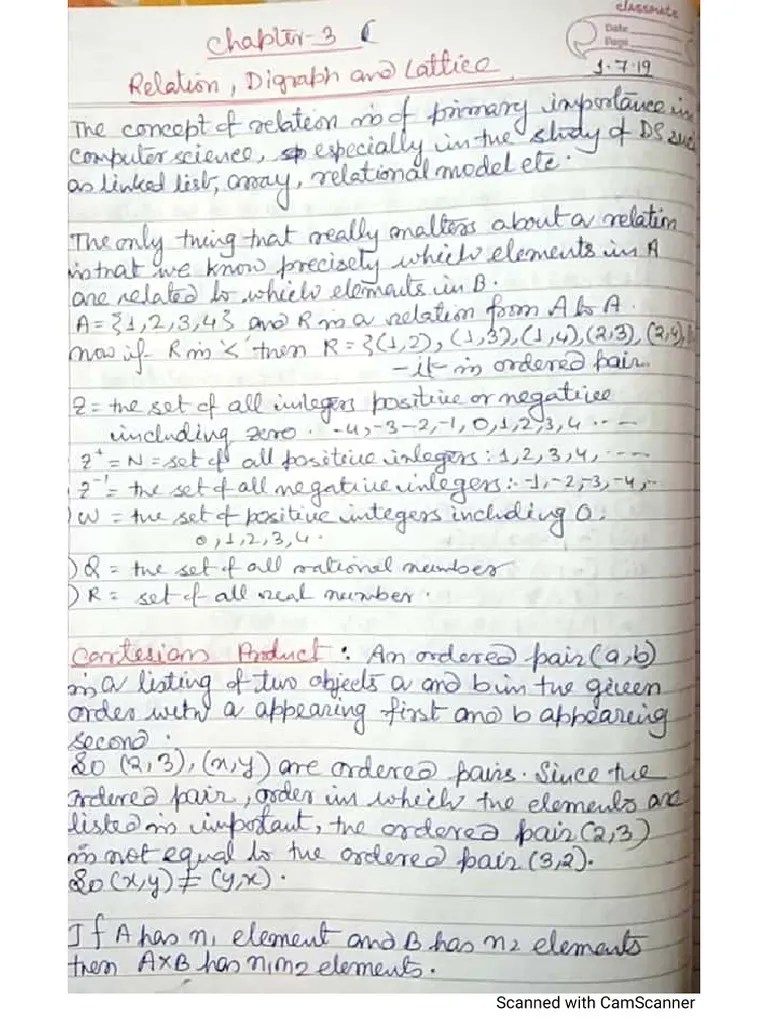 classmate
Date
Page
Chapter-3
1.7.19
Relation, Digraph and Lattice
The concept of relation is of primary importance in
computer science, especially in the study of DS such
as linked list, array, relational model etc.
The only thing that really matters about a relation
is that we know precisely which elements in A
are related to which elements in B.
A = {1,2,3,4} and R is a relation from A to A.
now if R is '<' then R = {(1,2), (1,3), (1,4), (2,3), (2,4),
- it is ordered pair.
Z = the set of all integers positive or negative
including zero. -4, -3 -2, -1, 0, 1, 2, 3, 4 ...
Z⁺ = N = set of all positive integers: 1, 2, 3, 4, ...
Z⁻¹ = the set of all negative integers: -1, -2, -3, -4, ..
) W = the set of positive integers including 0.
0, 1, 2, 3, 4.
) Q = the set of all rational number
) R = set of all real number.
Cartesian Product : An ordered pair (a,b)
is a listing of two objects a and b in the given
order with a appearing first and b appeareing
second.
So (2,3), (x,y) are ordered pairs. Since the
ordered pair, order in which the elements are
listed is important, the ordered pair (2,3)
is not equal to the ordered pair (3,2).
So (x,y) ≠ (y,x).
If A has n₁ element and B has n₂ elements
then A×B has n₁n₂ elements.
Scanned with CamScanner